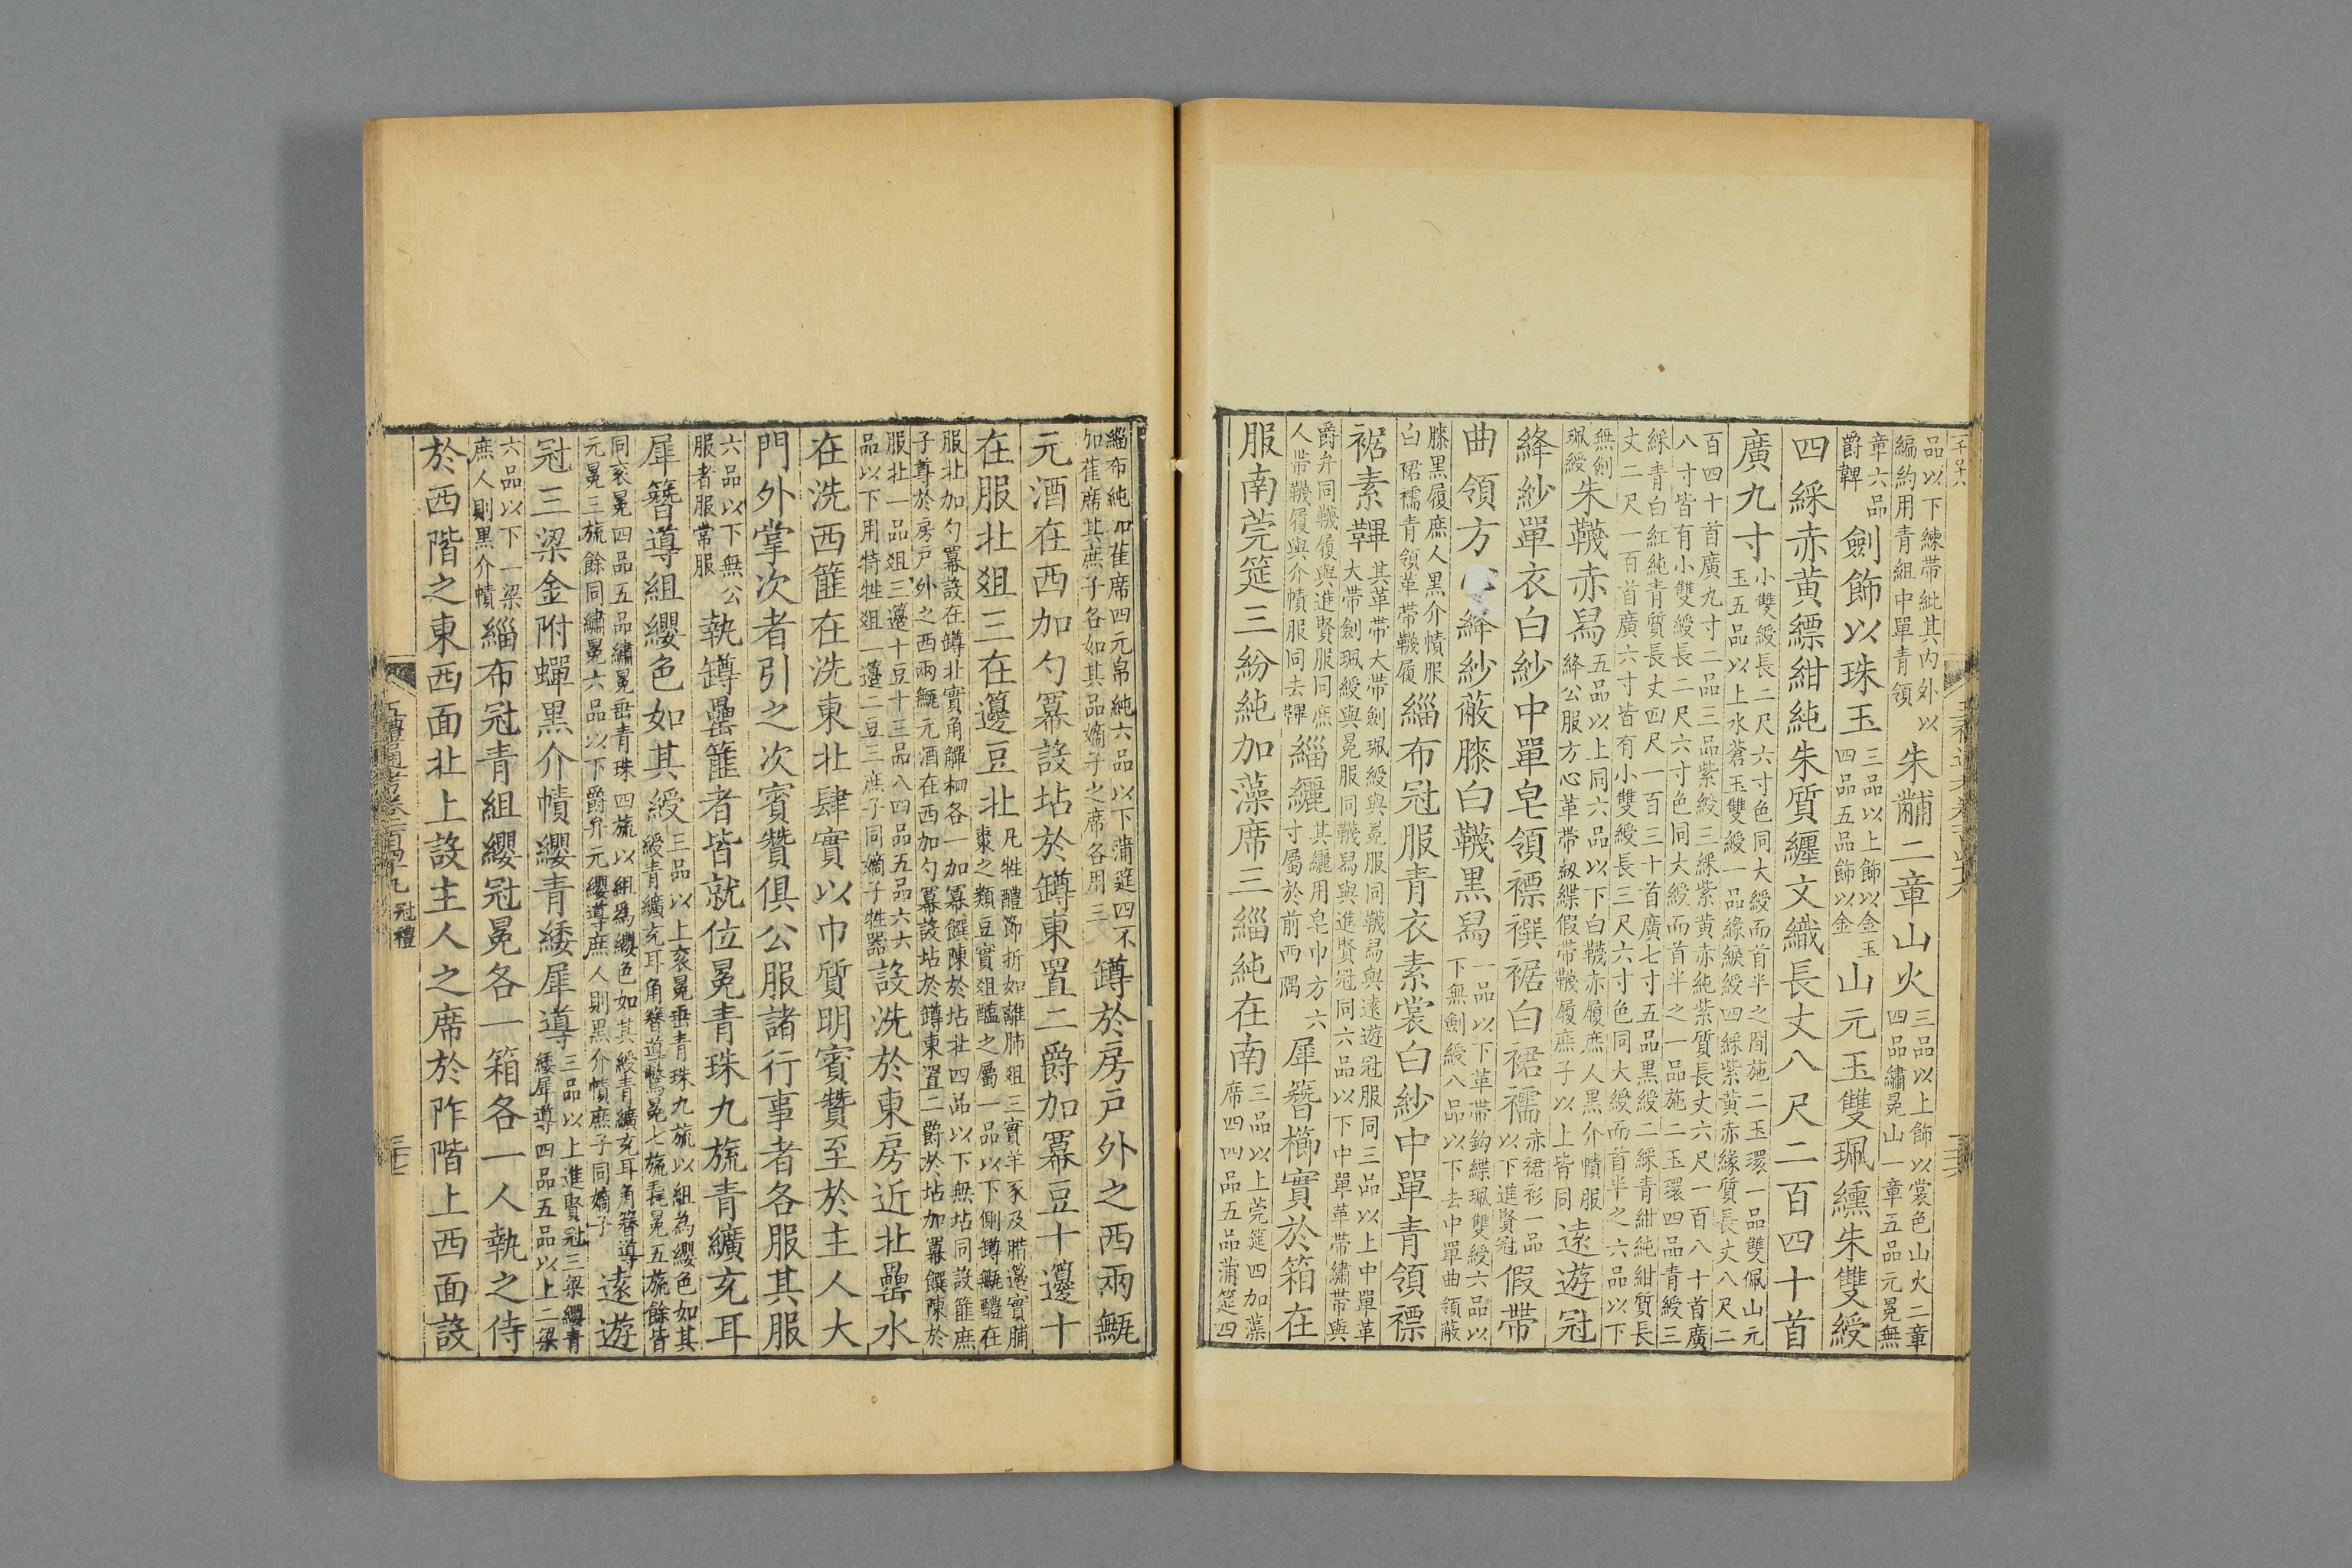 品以下練帶紕其内外以
編約用青組中單青領
朱黼二章山火
三品以上飾以裳色山火二章
四品繡冕山一章五品元冕無
章六品
爵韠
劍飾以珠玉
三品以上飾以金玉
四品五品飾以金
山元玉雙珮纁朱雙綬
四綵赤黃縹紺純朱質纏文織長丈八尺二百四十首
廣九寸
小雙綬長二尺六寸色同大綬而首半之間施二玉環一品雙佩山元
玉五品以上水蒼玉雙綬一品緣綟綬四綵紫黃赤緣質長丈八尺二
百四十首廣九寸二品三品紫綬三綵紫黃赤純紫質長丈六尺一百八十首廣
八寸皆有小雙綬長二尺六寸色同大綬而首半之一品施二玉環四品青綬三
綵青白紅純青質長丈四尺一百三十首廣七寸五品黑綬二綵青紺純紺質長
丈二尺一百首廣六寸皆有小雙綬長三尺六寸色同大綬而首半之六品以下
無劍
珮綬
朱韈赤舄
五品以上同六品以下白韈赤履庶人黑介幘服
絳公服方心革帶紛緤假帶韈履庶子以上皆同
遠遊冠
絳紗單衣白紗中單皂領褾襈裾白裙襦
赤裙衫一品
以下進賢冠
假帶
曲領方絳紗蔽膝白韈黑舄
一品以下革帶鈎緤珮雙綬六品以
下無劍綬八品以下去中單曲領蔽
膝黑履庶人黑介幘服
白裙襦青領革帶韈履
緇布冠服青衣素裳白紗中單青領褾
裾素韠
其革帶大帶劍珮綬與冕服同韈舄與遠遊冠服同三品以上中單革
大帶劍珮綬與冕服同韈舄與進賢冠同六品以下中單革帶繡帶與
爵弁同韈履與進賢服同庶
人帶韈履與介幘服同去韠
緇纚
其纚用皂巾方六
寸屬於前西隅
犀簪櫛實於箱在
服南莞筵三紛純加藻席三緇純在南
三品以上莞筵四加藻
席四四品五品蒲筵四
緇布純加萑席四元帛純六品以下蒲筵四不
加萑席其庶子各如其品嫡子之席各用三
罇於房戶外之西兩甒
元酒在西加勺冪設坫於罇東置二爵加冪豆十籩十
在服北俎三在籩豆北
凡牲醴節折如離肺俎三實羊豕及腊籩實脯
棗之類豆實俎醢之屬一品以下側罇甒醴在
服北加勺冪設在罇北實角觶柶各一加冪饌陳於坫北四品以下無坫同設篚庶
子尊於房戶外之西兩甒元酒在西加勺冪設坫於罇東置二爵於坫加冪饌陳於
服北一品俎三籩十豆十三品八四品五品六六
品以下用特牲俎一籩二豆三庶子同嫡子牲器
設洗於東房近北罍水
在洗西篚在洗東北肆實以巾質明賓贊至於主人大
門外掌次者引之次賓贊俱公服諸行事者各服其服
六品以下無公
服者服常服
執罇罍篚者皆就位冕青珠九旒青纊充耳
犀簪導組纓色如其綬
三品以上衮冕垂青珠九旒以組為纓色如其
綬青纊充耳角簪導鷩冕七旒毳冕五旒餘皆
同衮冕四品五品繡冕垂青珠四旒以組為纓色如其綬青纊充耳角簪導
元冕三旒餘同繡冕六品以下爵弁元纓導庶人則黑介幘庶子同嫡子
遠遊
冠三梁金附蟬黑介幘纓青緌犀導
三品以上進賢冠三梁纓青
緌犀導四品五品以上二梁
六品以下一梁
庶人則黑介幘
緇布冠青組纓冠冕各一箱各一人執之侍
於西階之東西面北上設主人之席於阼階上西面設
五禮通考卷一百四十九 冠禮
三七